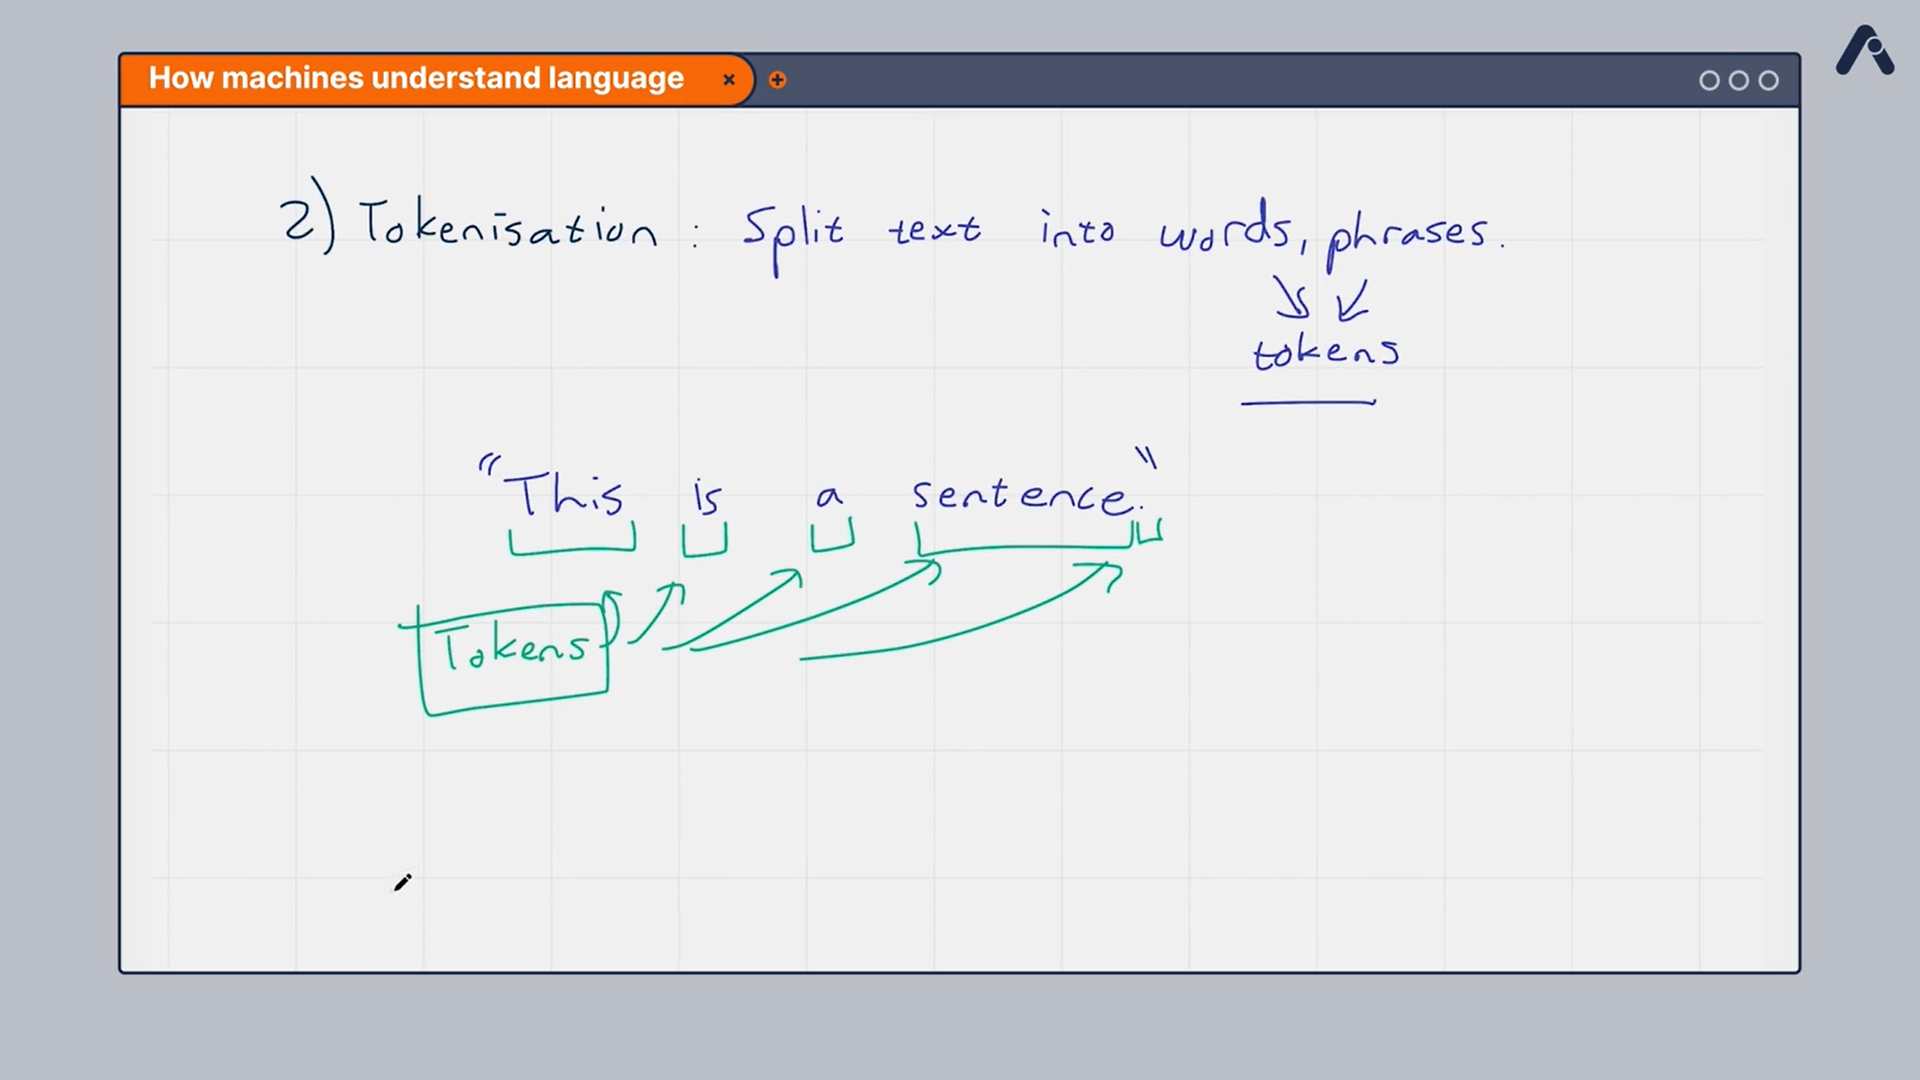 How machines understand language
2) Tokenisation : Split text into words, phrases.
tokens
"This is a sentence."
Tokens